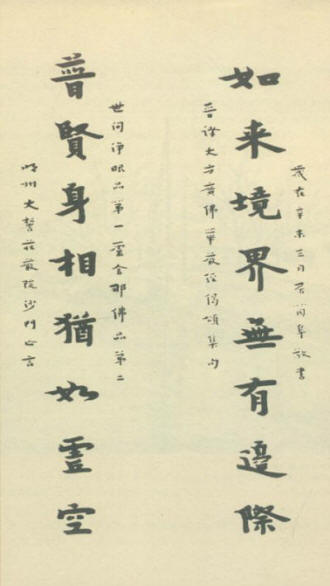 歲在辛未三月敬書
如来境界無有邊際
晉譯大方廣佛華嚴經偈頌集句
世間淨眼品第一盧舍那佛品第二
普賢身相猶如虛空
明州大誓莊嚴院沙門亡言